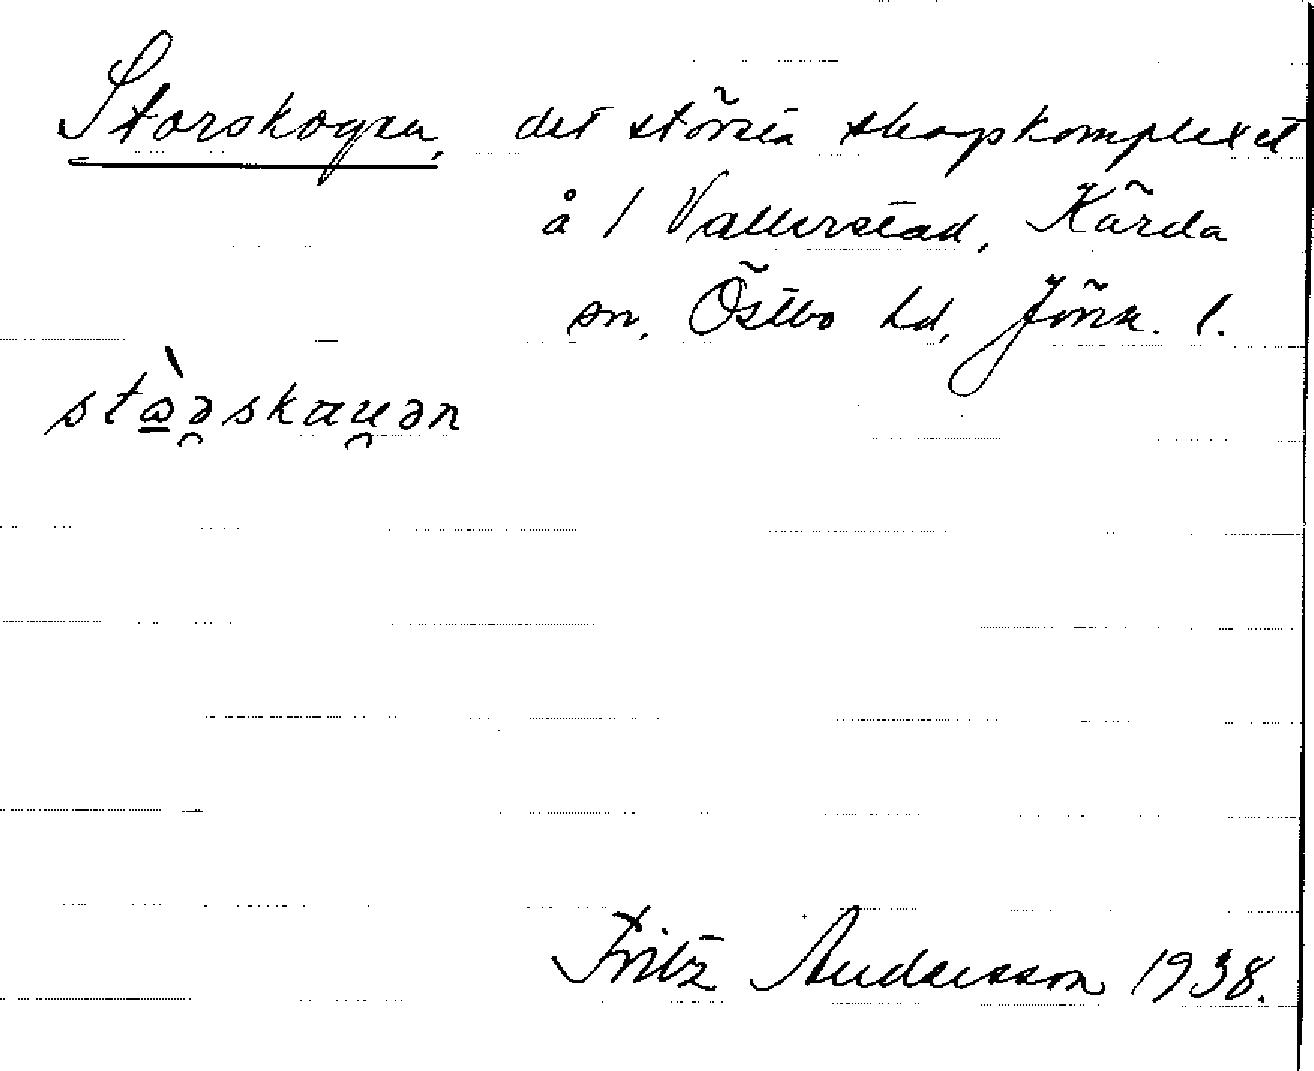 Storskogen, det största skogskomplexet
å 1 Vallerstad, Kärda
sn, Östbo hd, Jönk. l.
stɷ̀ə̯skau̯ən
Fritz Andersson 1938.